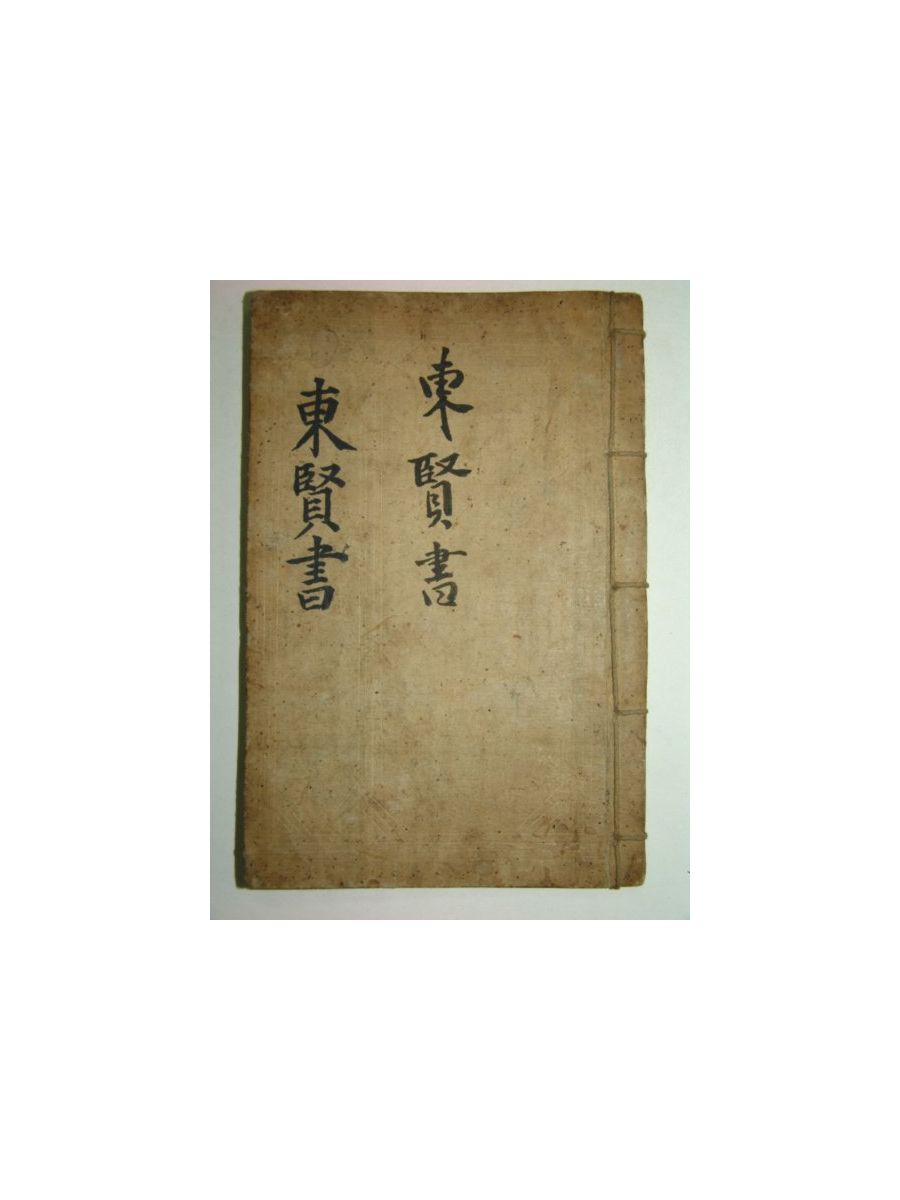 東賢書
東賢書